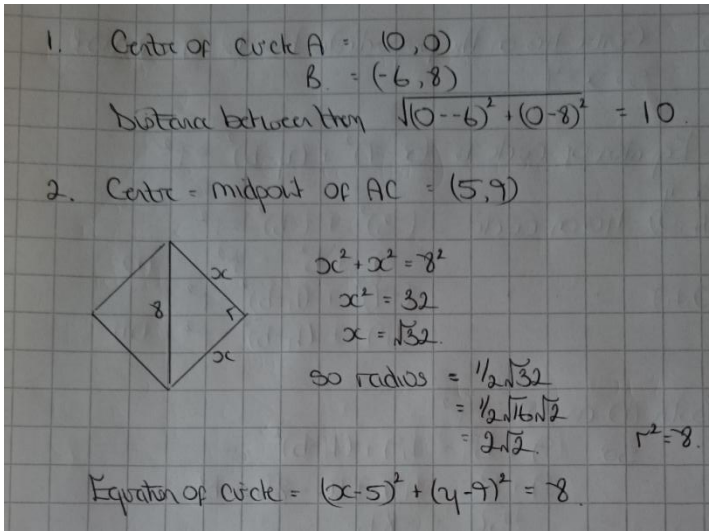 1. Centre of circle A = (0,0)
B = (-6,8)
Distance between them √(0--6)² + (0-8)² = 10.
2. Centre = midpoint of AC = (5,9)
x
8
x
x² + x² = 8²
x² = 32
x = √32.
so radios = 1/2√32
= 1/2√16√2
= 2√2. r² = 8.
Equation of circle = (x-5)² + (y-9)² = 8.